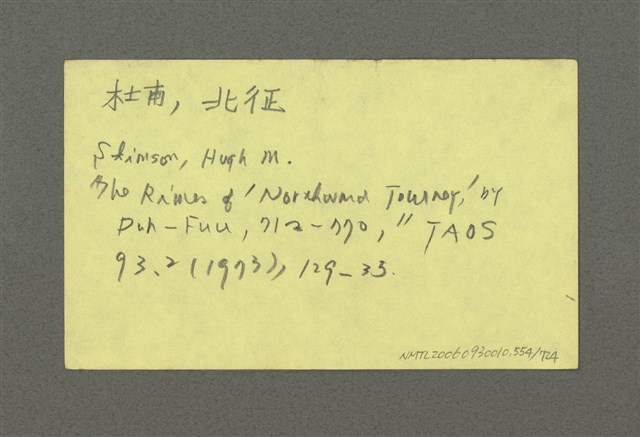 杜甫, 北征
Stimson, Hugh M.
"The Rimes of 'Northward Journey,' by
Duh-Fuu, 712-770," JAOS
93.2 (1973), 129-35.
NMTL20060930010.554/724